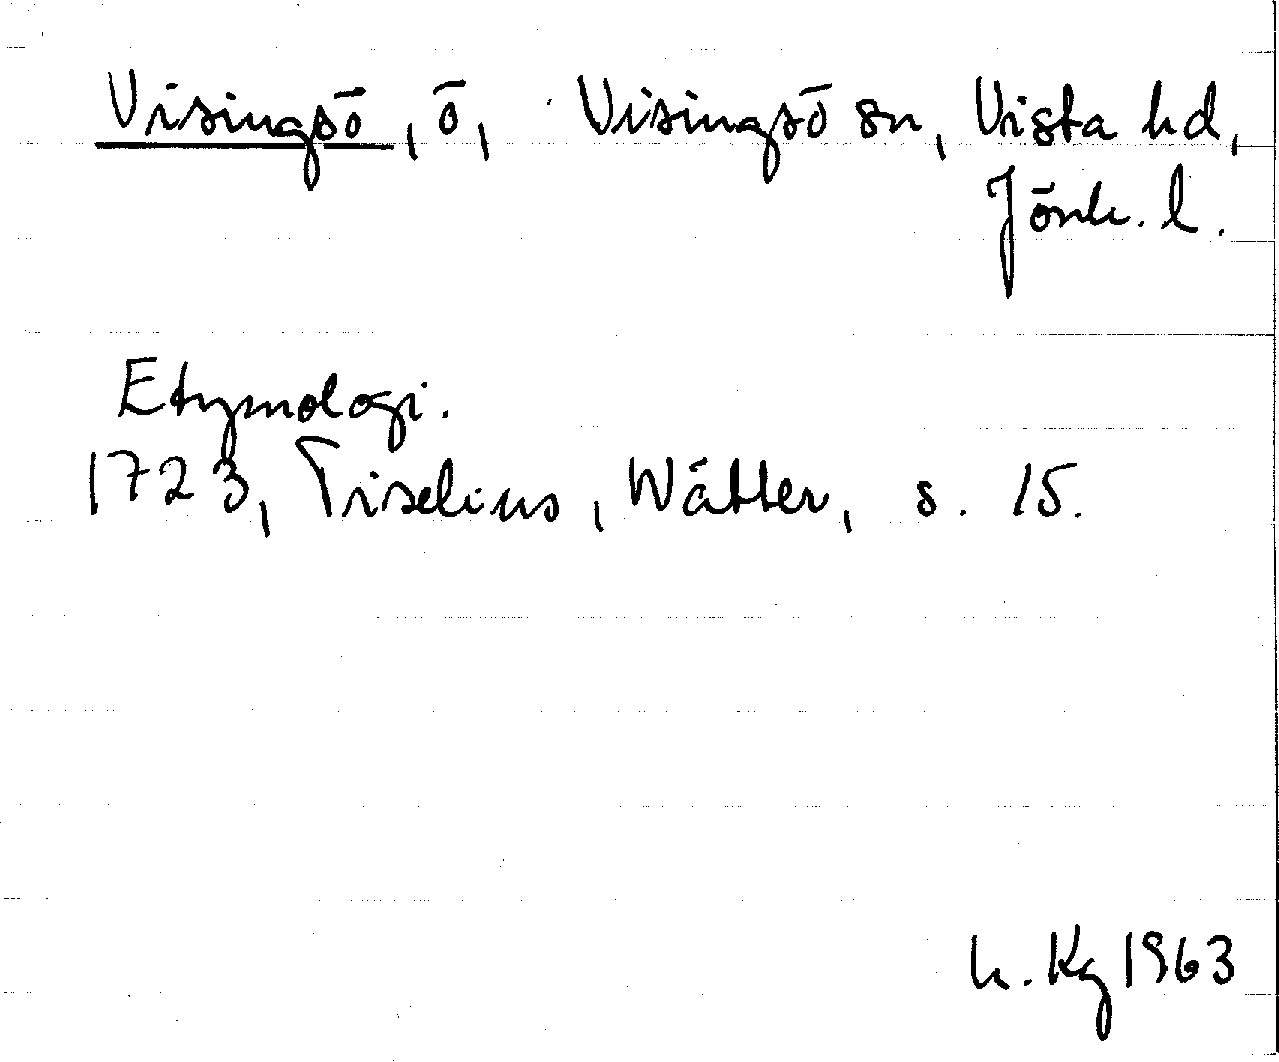 Visingsö, ö, Visingsö sn, Vista hd,
Jönk. l.
Etymologi.
1723, Tiselius, Wätter, s. 15.
Kg 1963